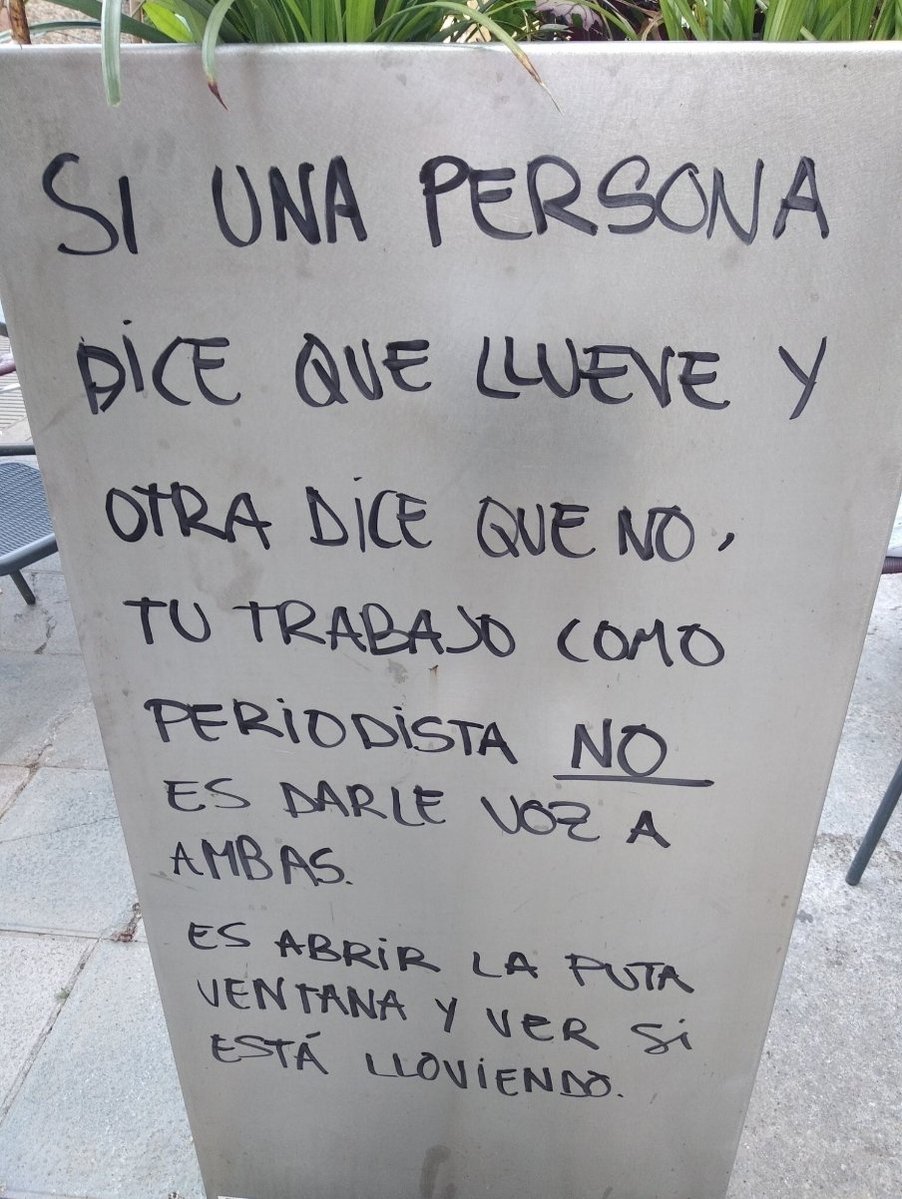 SI UNA PERSONA
DICE QUE LLUEVE Y
OTRA DICE QUE NO,
TU TRABAJO COMO
PERIODISTA NO
ES DARLE VOZ A
AMBAS.
ES ABRIR LA PUTA
VENTANA Y VER SI
ESTÁ LLOVIENDO.